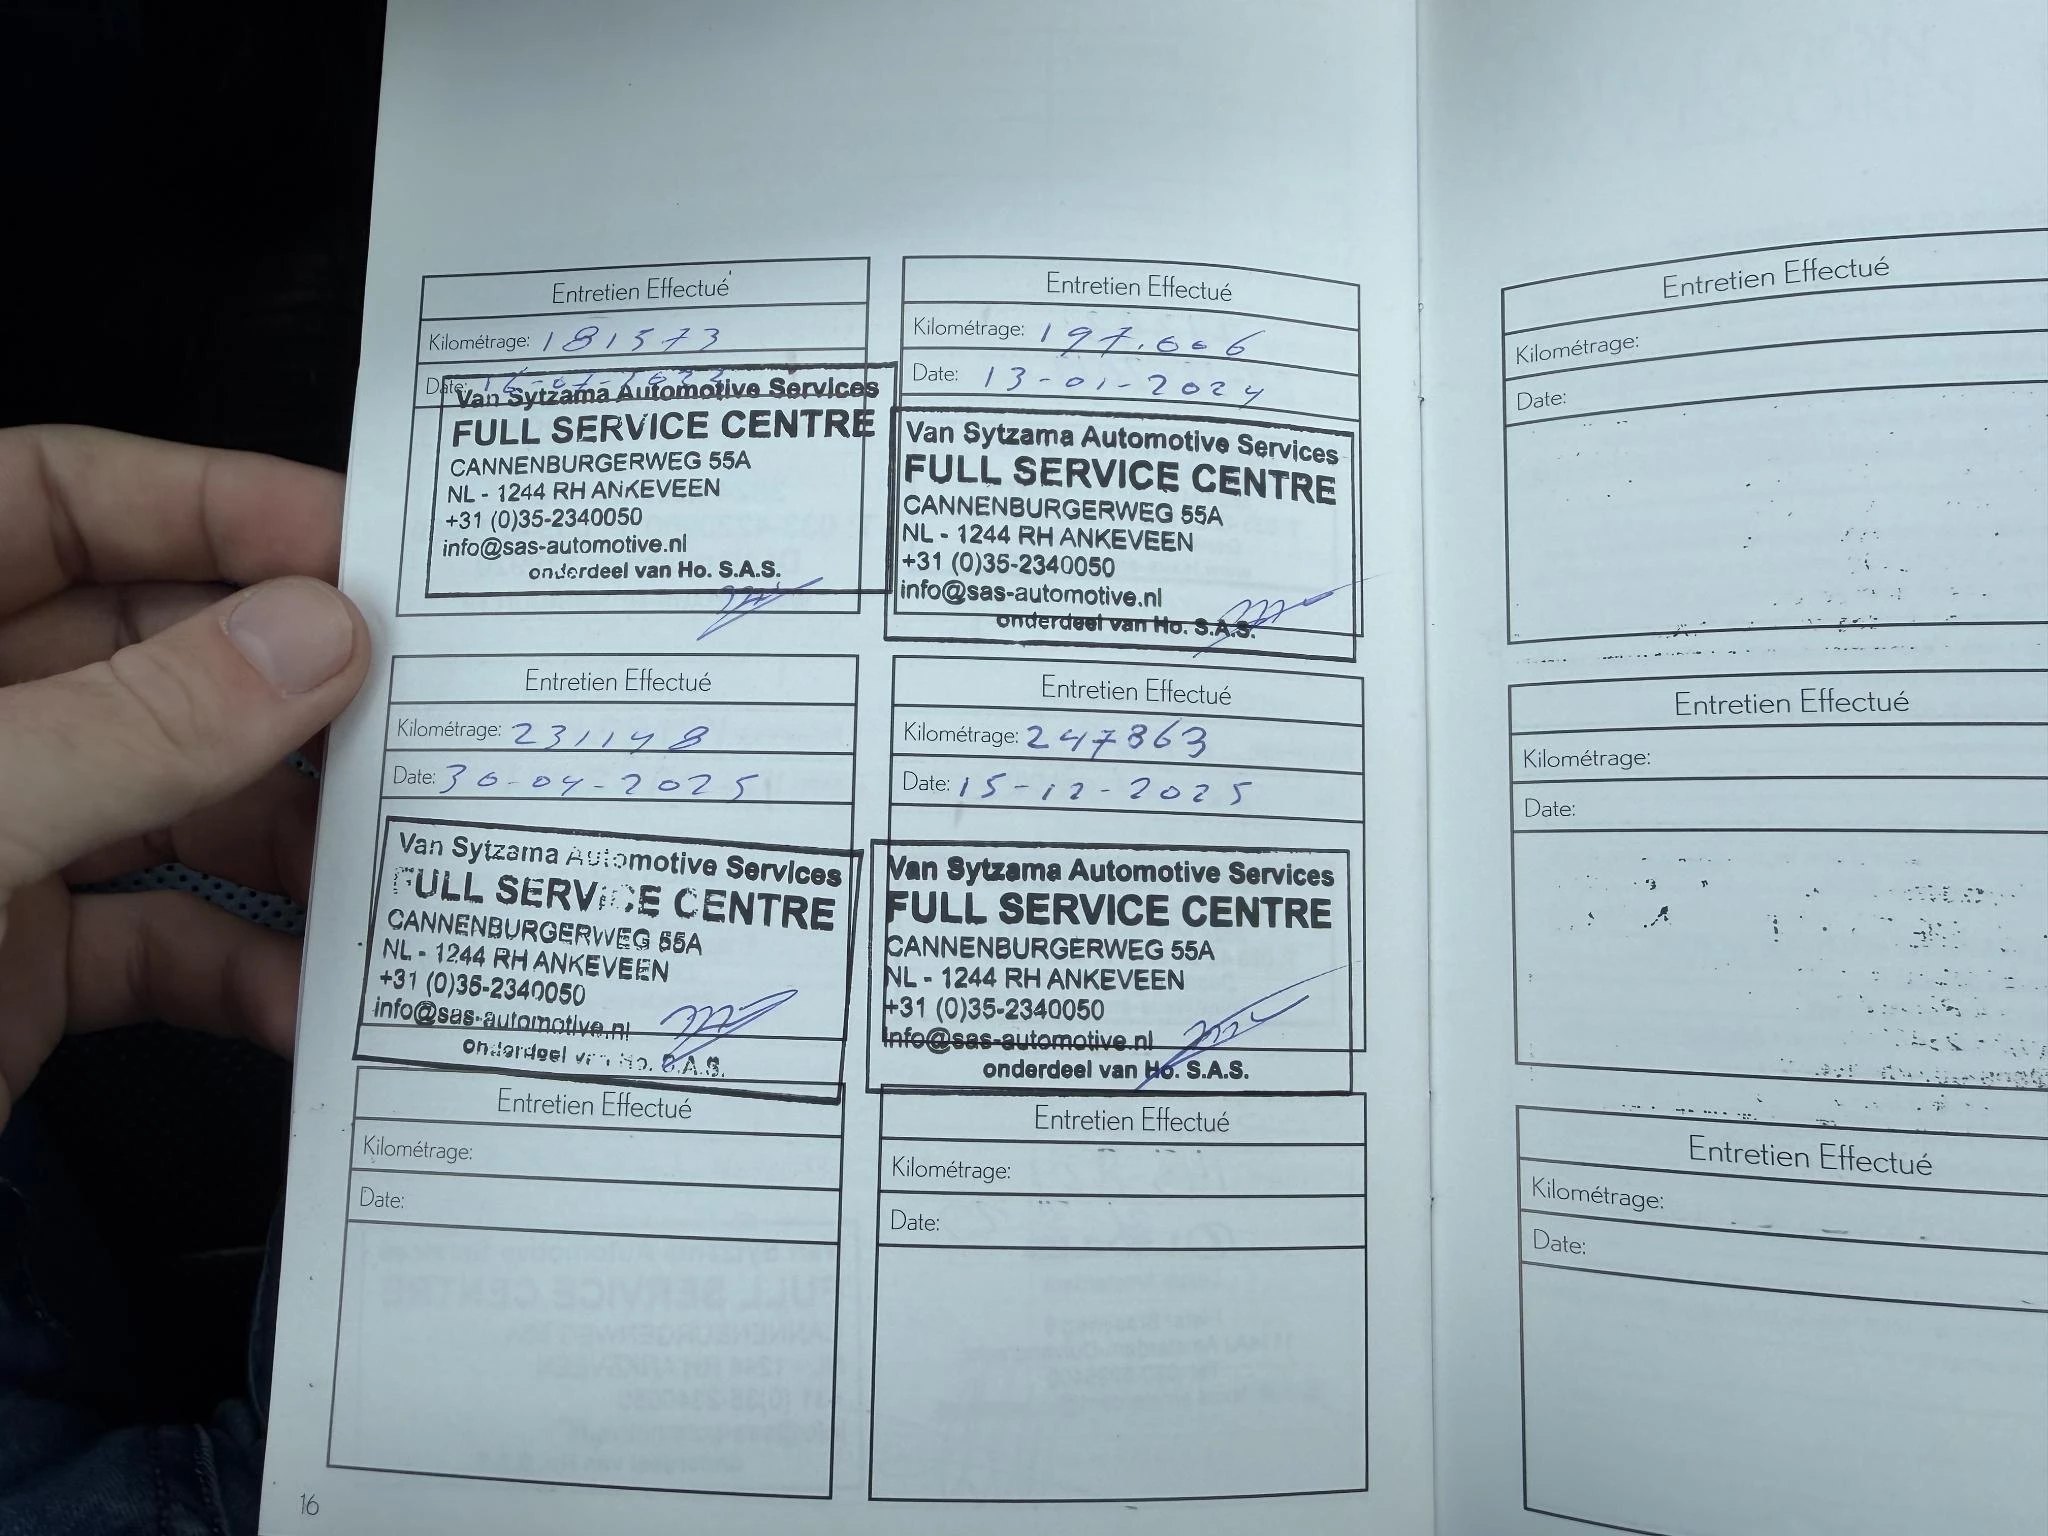 Entretien Effectué
Kilométrage: 181573
Date: 16-01-2023
Van Sytzama Automotive Services
FULL SERVICE CENTRE
CANNENBURGERWEG 55A
NL - 1244 RH ANKEVEEN
+31 (0)35-2340050
info@sas-automotive.nl
onderdeel van Ho. S.A.S.
Entretien Effectué
Kilométrage: 197.006
Date: 13-01-2024
Van Sytzama Automotive Services
FULL SERVICE CENTRE
CANNENBURGERWEG 55A
NL - 1244 RH ANKEVEEN
+31 (0)35-2340050
info@sas-automotive.nl
onderdeel van Ho. S.A.S.
Entretien Effectué
Kilométrage: 231148
Date: 30-04-2025
Van Sytzama Automotive Services
FULL SERVICE CENTRE
CANNENBURGERWEG 55A
NL - 1244 RH ANKEVEEN
+31 (0)35-2340050
info@sas-automotive.nl
onderdeel van Ho. S.A.S.
Entretien Effectué
Kilométrage: 247863
Date: 15-12-2025
Van Sytzama Automotive Services
FULL SERVICE CENTRE
CANNENBURGERWEG 55A
NL - 1244 RH ANKEVEEN
+31 (0)35-2340050
info@sas-automotive.nl
onderdeel van Ho. S.A.S.
Entretien Effectué
Kilométrage:
Date:
Entretien Effectué
Kilométrage:
Date:
16
Entretien Effectué
Kilométrage:
Date:
Entretien Effectué
Kilométrage:
Date:
Entretien Effectué
Kilométrage:
Date: